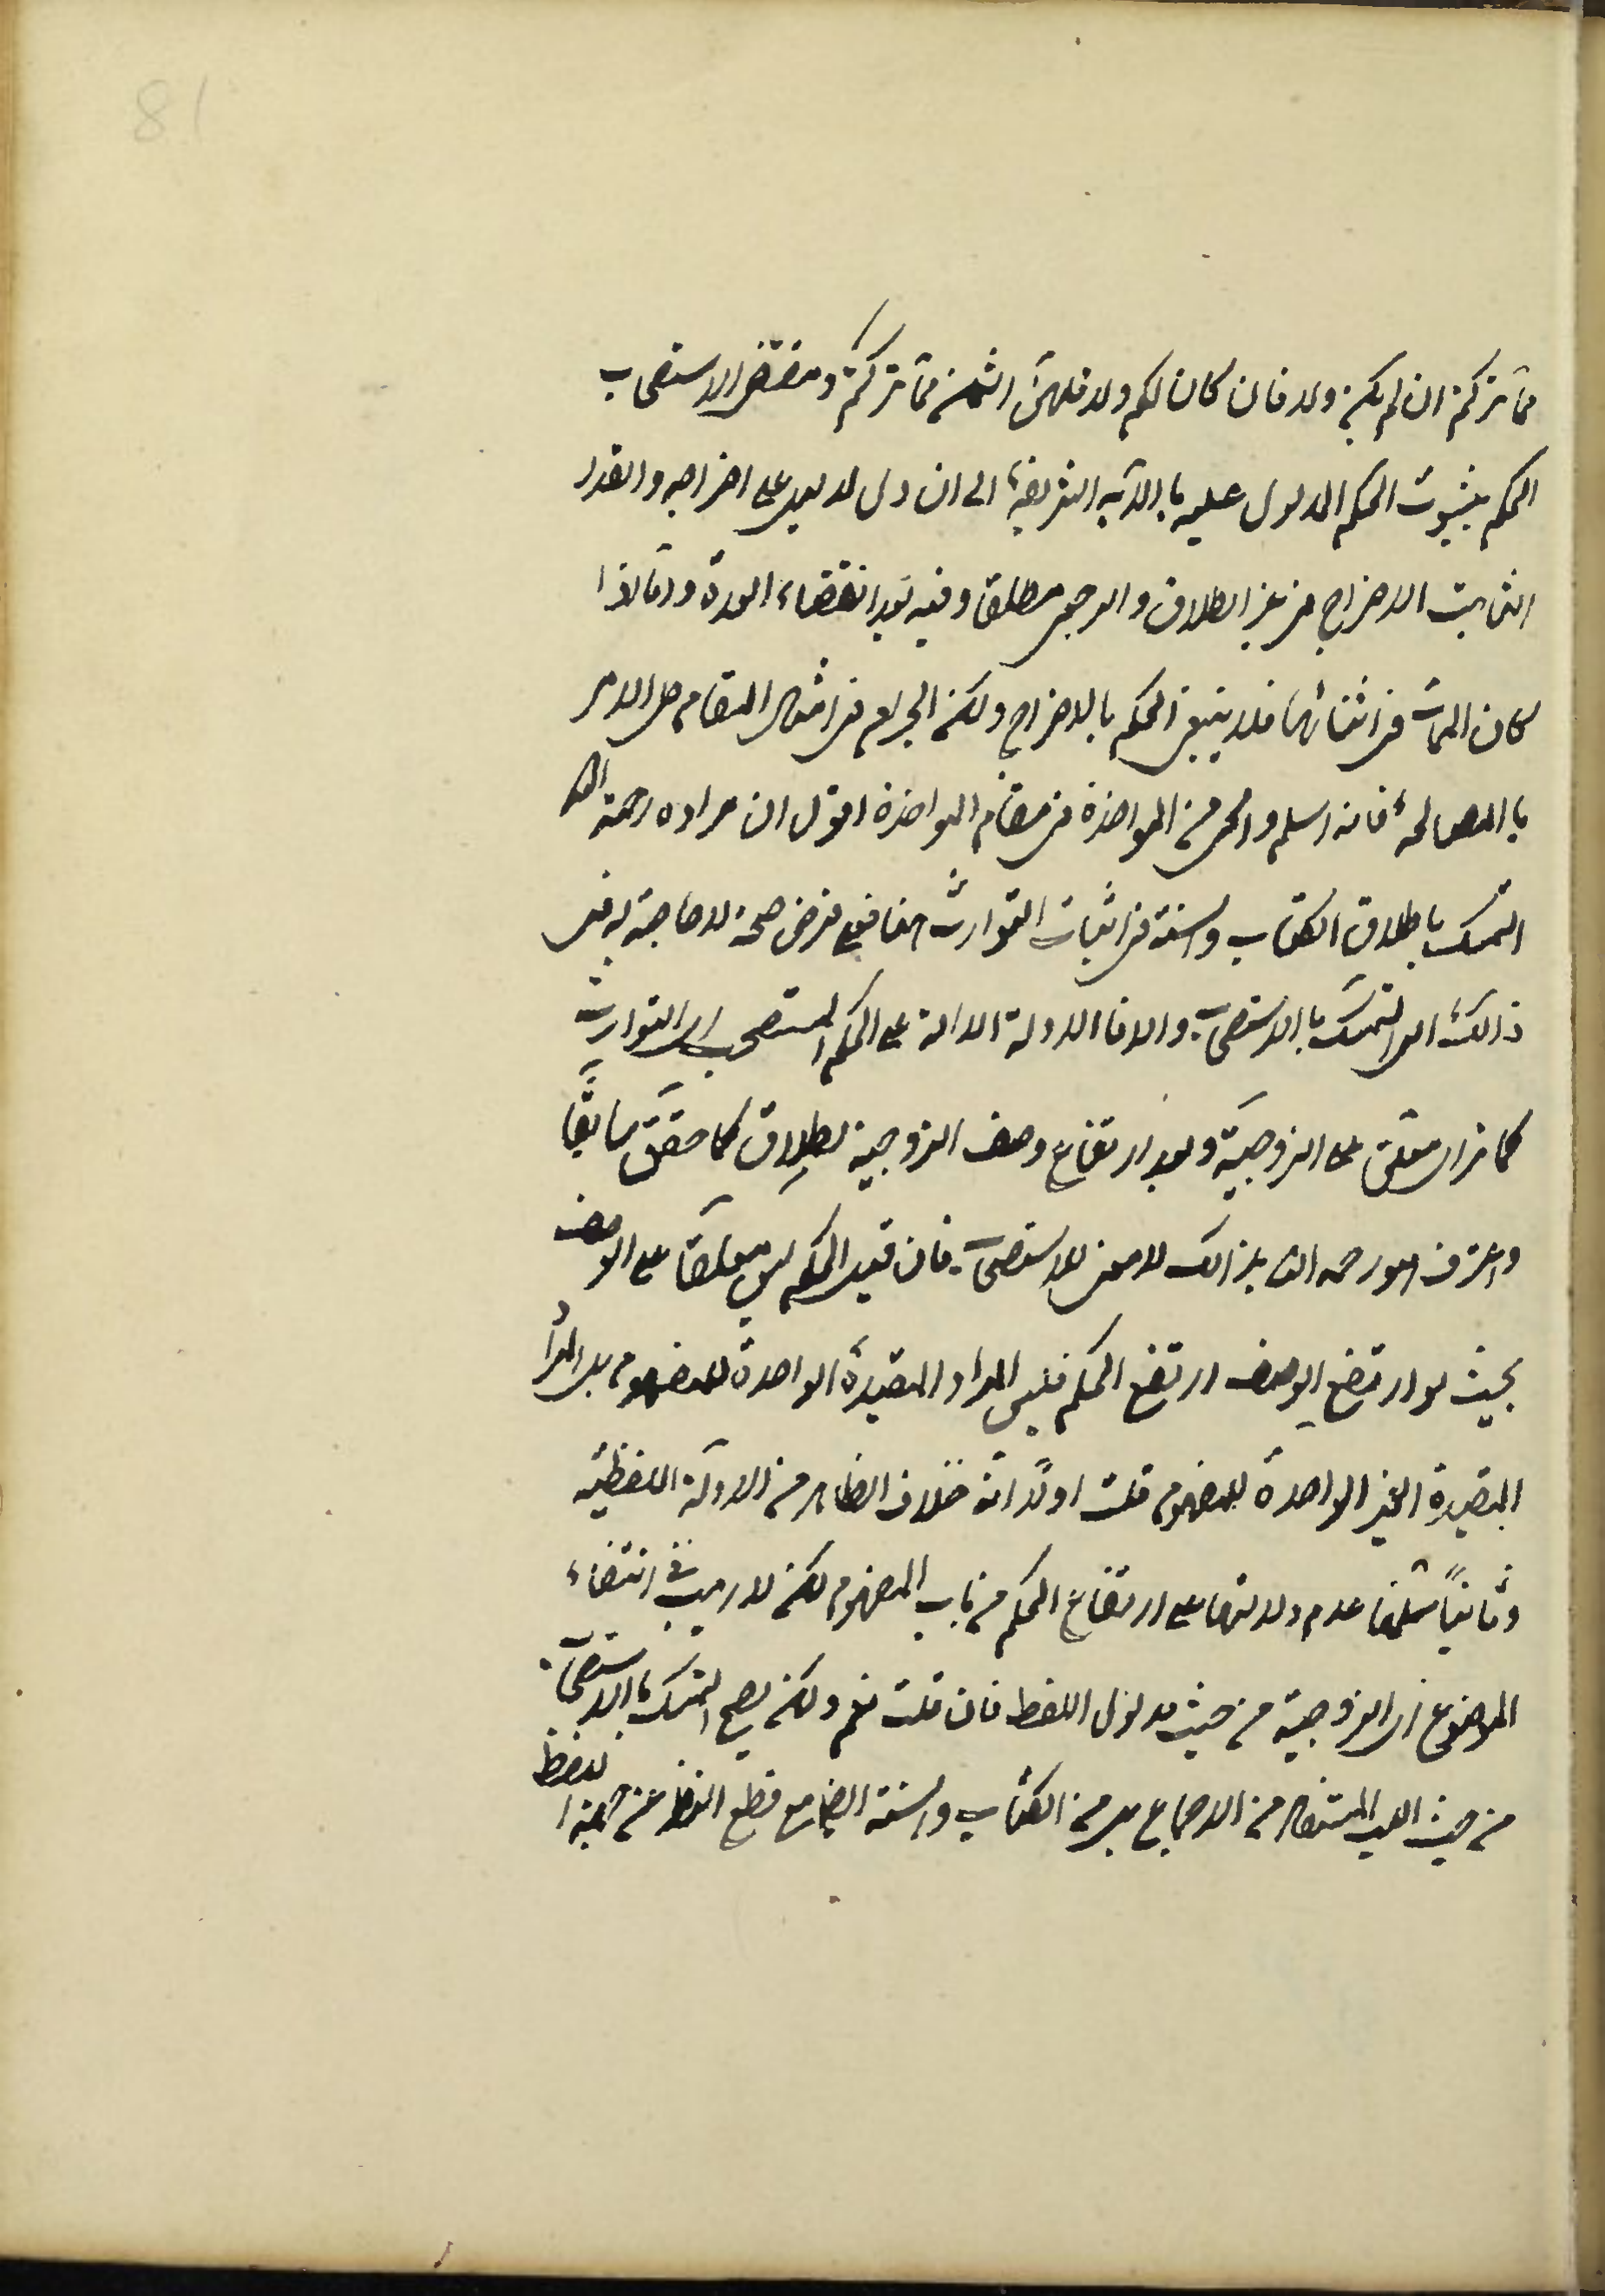 81
مما تركتم ان لم يكن ولد فان كان لكم ولد فلهن الثمن مما تركتم ومقتضى الاستصحاب
الحكم بثبوت الحكم المدلول عليه باالآيه الشريفة الى ان دل لدليل على اخراجه والقدر
الثابت الاخراج فى غير الطلاق والرجعى مطلقا وفيه بعد انقضاء العدة واما اذا
كان الممات فى اثنائها فلا ينبغى الحكم بالاخراج ولكن المقام حل الامر
باالمصالحة فانه اسلم من المواخذة فى مقام المواخذة اقول ان مراده رحمة الله
التمسك باطلاق الكتاب والسنة فى اثبات التوارث فعلى فرض صحة لا حاجة له فى
ذالك الى التمسك باالاستصحاب والا فاالادلة الدالة على الحكم المستصحب اى التوارث
كما ترى معلق على الزوجية وبعد ارتفاع وصف الزوجية بطلاق كما حقق سابقا
واعترف هو رحمه الله بذالك لا معنى للاستصحاب فان قيل الحكم ليس معلقا على الوصف
بحيث لو ارتفع الوصف ارتفع الحكم فليس المراد المقيدة الواحدة للمفهوم بل المراد
المقيدة الغير الواحدة للمفهوم قلت اولا انه خلاف الظاهر من الادلة اللفظية
وثانيا سلمنا عدم دلالتها على ارتفاع الحكم من باب المفهوم لكن لا ريب فى انتفاء
الموضوع اى الزوجية من حيث مدلول اللفظ فان قلت نعم ولكن يصح التمسك باالاستصحاب
من حيث المستفاد من الاجماع بل من الكتاب والسنة ايضا مع قطع النظر عن جهة اللفظ